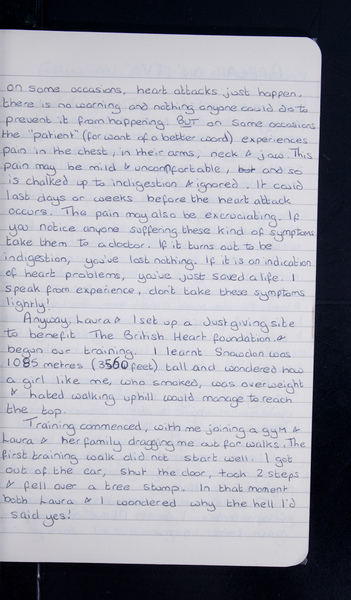 on some occasions, heart attacks just happen.
there is no warning and nothing anyone could do to
prevent it from happening. BUT on some occasions
the "patient" (for want of a better word) experiences
pain in the chest, in their arms, neck & jaw. This
pain may be mild & uncomfortable, but and so
is chalked up to indigestion & ignored. It could
last days or weeks before the heart attack
occurs. The pain may also be excruciating. If
you notice anyone suffering these kind of symptoms
take them to a doctor. If it turns out to be
indigestion, you've lost nothing. If it is an indication
of heart problems, you've just saved a life. I
speak from experience, don't take these symptoms
lightly!
Anyway, Laura & I set up a Just giving site
to benefit The British Heart foundation &
began our training. I learnt Snowdon was
1085 metres (3560 feet) tall and wondered how
a girl like me, who smoked, was overweight
& hated walking uphill would manage to reach
the top.
Training commenced, with me joining a gym &
Laura & her family dragging me out for walks. The
first training walk did not start well. I got
out of the car, shut the door, took 2 steps
& fell over a tree stump. In that moment
both Laura & I wondered why the hell I'd
said yes!